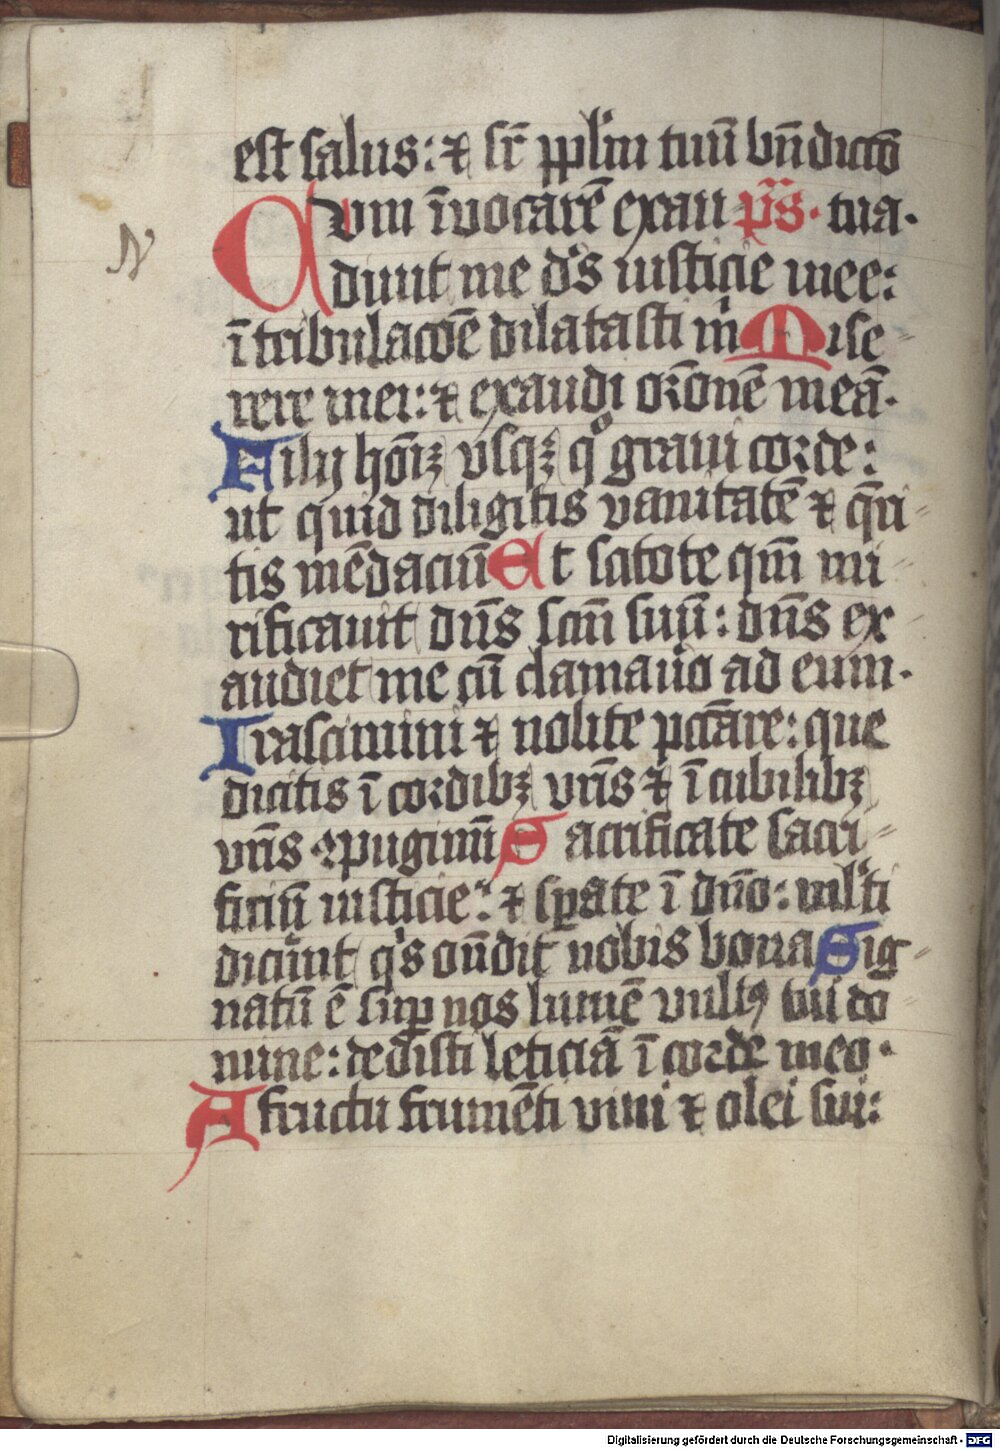 est salus: ⁊ sr̄ pplm̄ tuū bn̄dictō
Cvm īuocarē exau p̄s. tua.
diuit me d's iusticie mee:
ī tribulacōe dilatasti m̄ Mise
rere mei: ⁊ exaudi or̄onē meā.
Filij hoīꝫ vsqꝫ qͦ graui corde:
ut quid diligitis vanitatē ⁊ q̄ri
tis mēdaciū Et scitote qm̄ mi
rificauit dn̄s sc̄m suū: dn̄s ex
audiet me cū clamau'o ad eum.
Irascimini ⁊ nolite pcc̄are: que
dicitis ī cordibꝫ vr̄is ⁊ ī cubilibꝫ
vr̄is ꝯpugimī Sacrificate sacri
ficiū iusticie: ⁊ spate ī dn̄o: mlti
dicūt q's on̄dit nobis bona Sig
natū ē sup nos lumē vultꝰ tui do
mine: dedisti leticiā ī corde meo.
A fructu frumēti vini ⁊ olei sui:
N
Digitalisierung gefördert durch die Deutsche Forschungsgemeinschaft - DFG